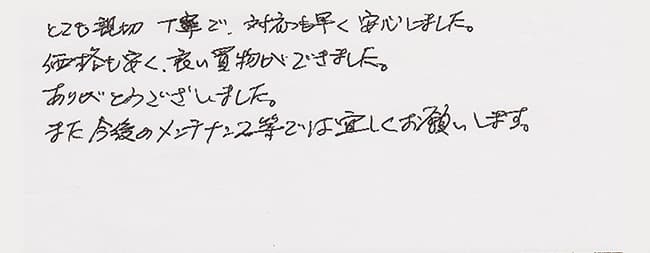 とても親切 丁寧で、対応も早く安心しました。
価格も安く、良い買物ができました。
ありがとうございました。
また今後のメンテナンス等では宜しくお願いします。